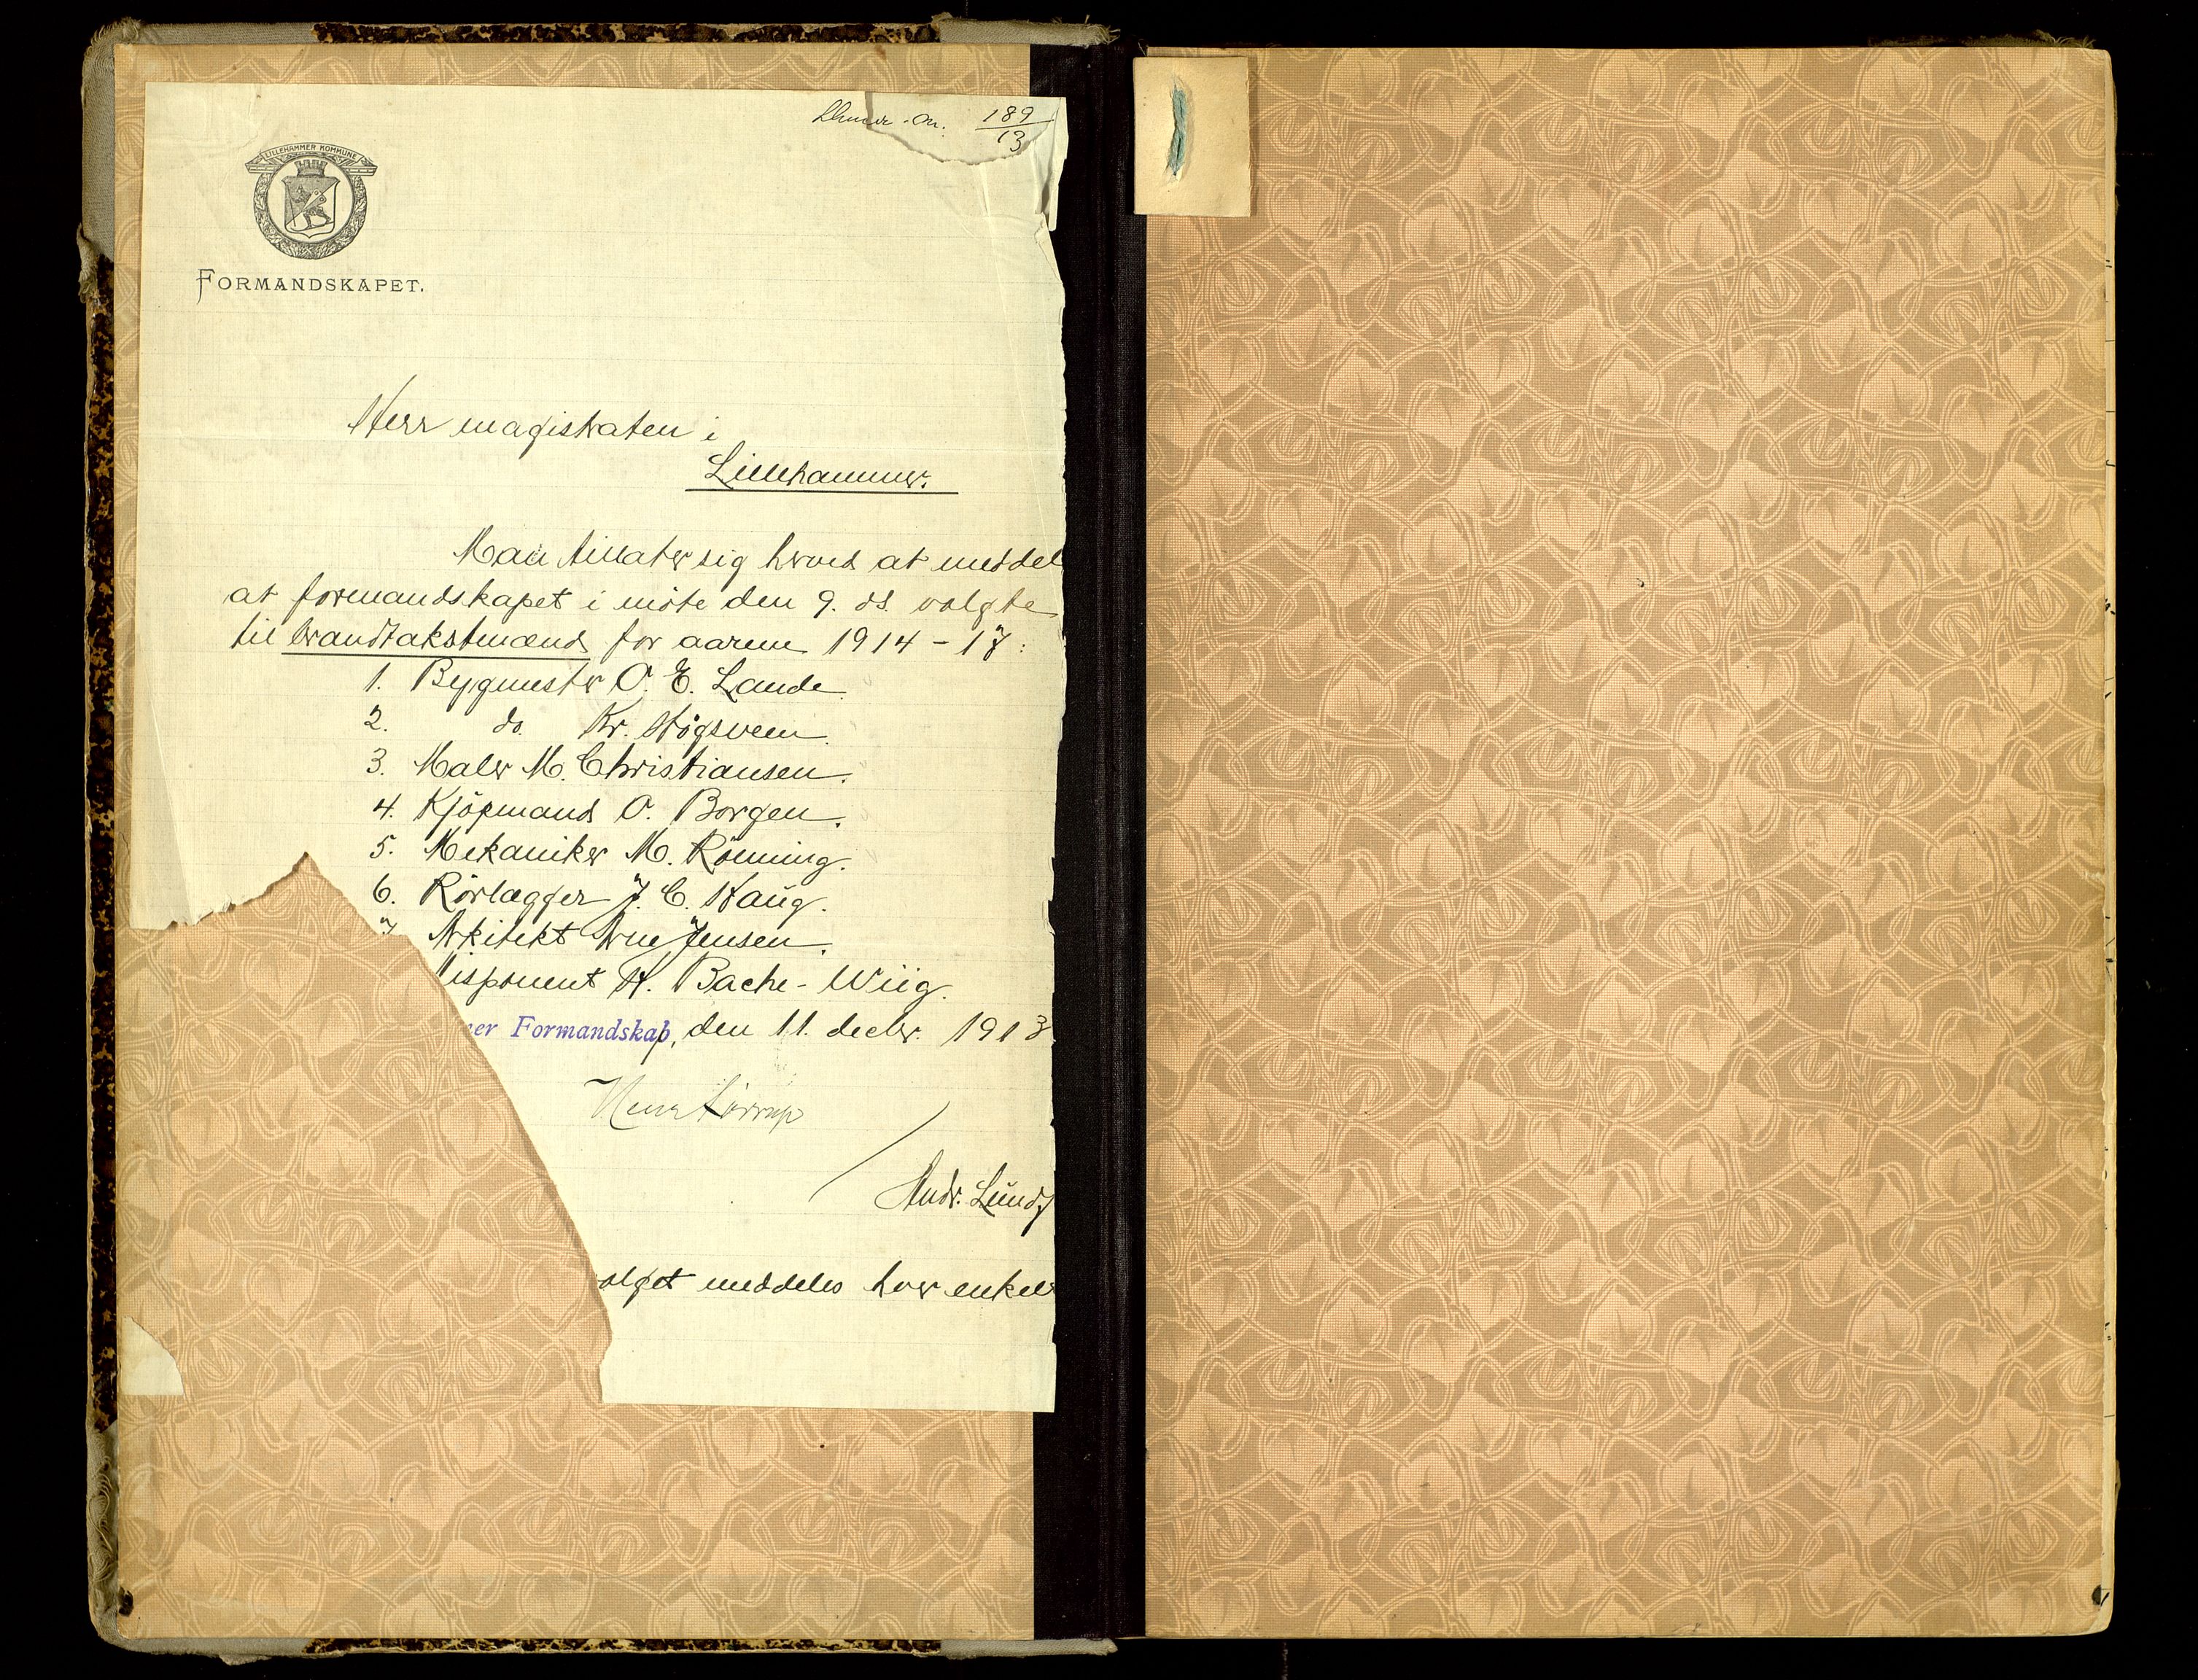 189
13
LILLEHAMMER KOMMUNE
FORMANDSKAPET.
Herr magistraten i
Lillehammer.
Man tillater sig herved at meddel
at formandskapet i møte den 9. ds. valgte
til brandtakstmænd for aarene 1914 - 17:
1. Bygmester O. E. Lande.
2. do. Kr. Høgsveen.
3. Maler M. Christiansen.
4. Kjøpmand O. Borgen.
5. Mekaniker M. Rönning.
6. Rørlægger J. C. Haug.
7 Arkitekt Arne Jensen.
isponent H. Bache-Wiig.
mer Formandskap, den 11. decbr. 1913
Andr. Lund
alget meddeles hver enkelt